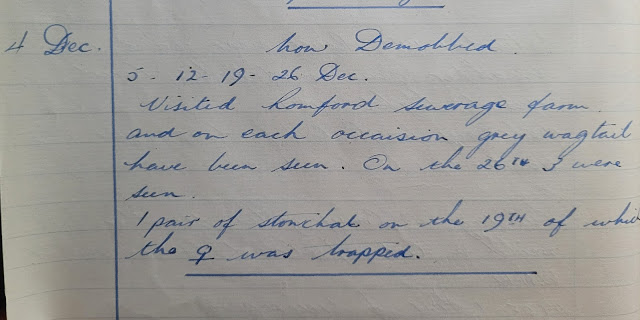 4 Dec. how Demobbed.
5 - 12 - 19 - 26 Dec.
Visited Romford sewerage farm
and on each occaision grey wagtail
have been seen. On the 26TH 3 were
seen.
1 pair of stonchat on the 19TH of whi
the ♀ was trapped.